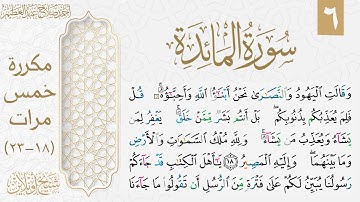 ٦
سورة المائدة
مكررة
خمس
مرات
(١٨-٢٣)
وَقَالَتِ الْيَهُودُ وَالنَّصَٰرَىٰ نَحْنُ أَبْنَٰٓؤُا۟ اللَّهِ وَأَحِبَّٰٓؤُهُۥ ۚ قُلْ
فَلِمَ يُعَذِّبُكُم بِذُنُوبِكُم ۖ بَلْ أَنتُم بَشَرٌ مِّمَّنْ خَلَقَ ۚ يَغْفِرُ لِمَن
يَشَآءُ وَيُعَذِّبُ مَن يَشَآءُ ۚ وَلِلَّهِ مُلْكُ السَّمَٰوَٰتِ وَالْأَرْضِ
وَمَا بَيْنَهُمَا ۖ وَإِلَيْهِ الْمَصِيرُ ١٨ يَٰٓأَهْلَ الْكِتَٰبِ قَدْ جَآءَكُمْ
رَسُولُنَا يُبَيِّنُ لَكُمْ عَلَىٰ فَتْرَةٍ مِّنَ الرُّسُلِ أَن تَقُولُوا۟ مَا جَآءَنَا